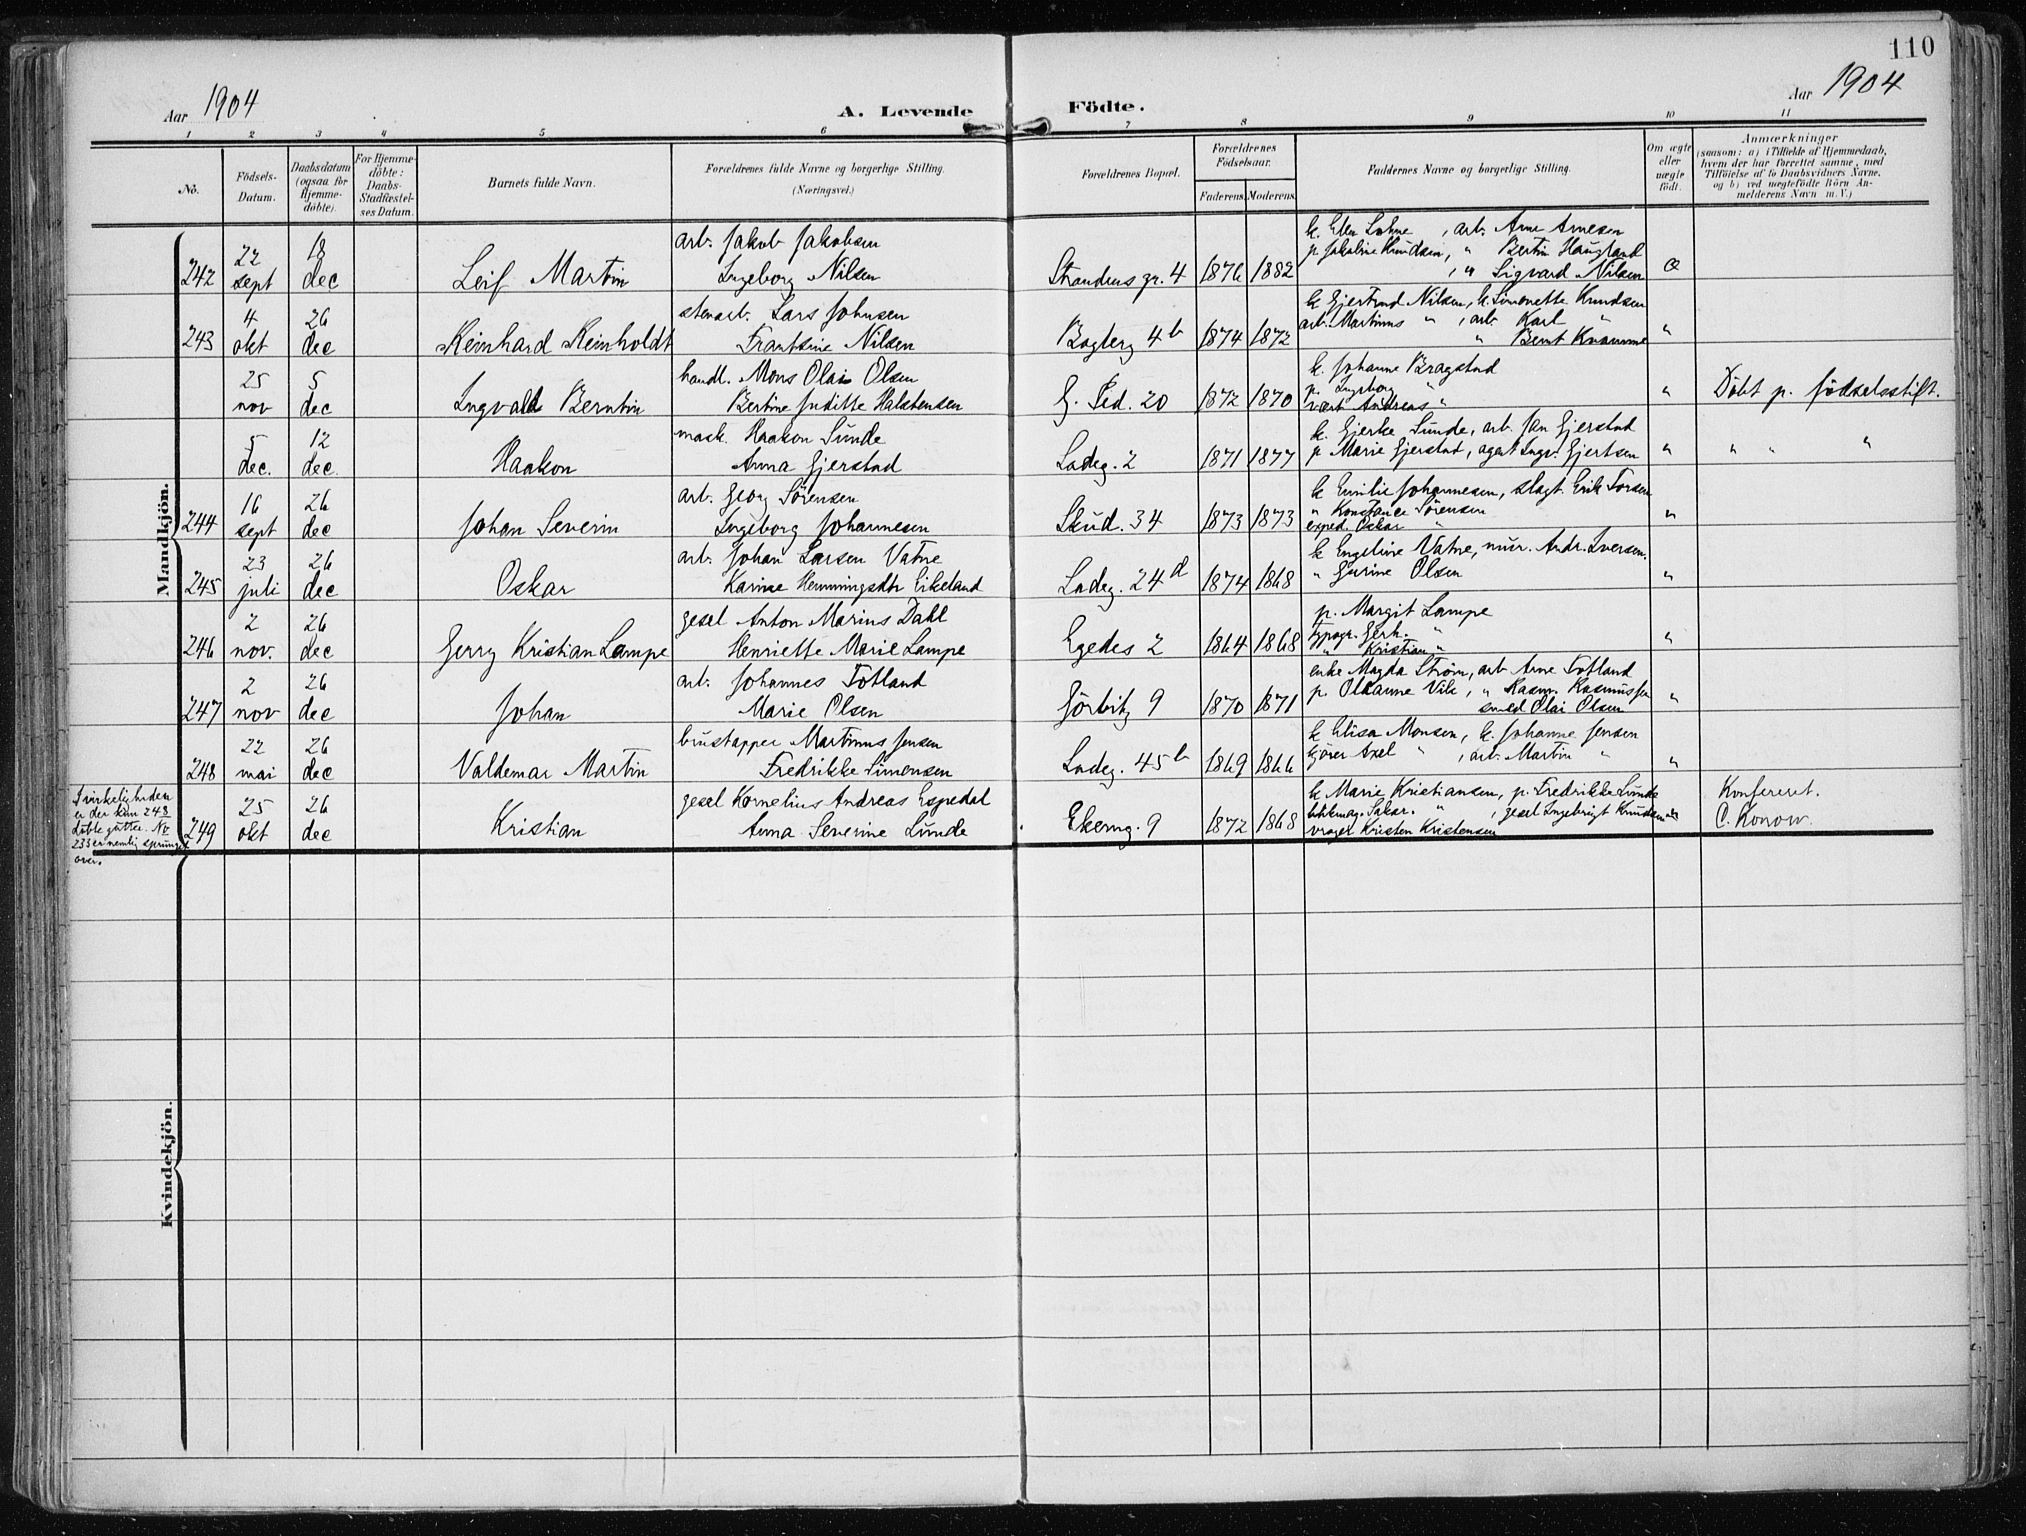 110
Aar 1904
A. Levende Födte.
Aar 1904
1 2 3 4 5 6 7 8 9 10 11
No.
Födsels-Datum.
Daabsdatum (ogsaa for Hjemme-döbte).
For Hjemme-döbte: Daabs-Stadfæstel-ses Datum.
Barnets fulde Navn.
Forældrenes fulde Navne og borgerlige Stilling. (Næringsvei.)
Forældrenes Bopæl.
Forældrenes Födselsaar.
Faderens. Moderens.
Faddernes Navne og borgerlige Stilling.
Om ægte eller uægte födt.
Anmærkninger (saasom: a) i Tilfælde af Hjemmedaab, hvem der har forrettet samme, med Tilföielse af to Daabsvidners Navne, og b) ved uægtefödte Börn Anmelderens Navn m. V.)
Mandkjön.
242 22 sept 18 dec Leif Martin
arb. Jakob Jakobsen
Ingeborg Nilsen
Strandens gr. 4 1876 1882
arb. Arne Arnesen
p. Jakobine Knudsen, " Bertin Haugland
, " Sigvard Nilsen
243 4 okt 26 dec Reinhard Reinholdt
stenarb. Lars Johnsen
Frantsine Nilsen
4b 1874 1872
k. Gjertrud Nilsen, k. Simonette Knudsen
arb. Martinus " , arb. Karl "
" Bernt Kvamme "
25 nov 5 dec Ingvald Berntin
handl. Mons Olai Olsen
Bertine Juditte Halstensen
G. Ped. 20 1872 1870
k. Johanne Bragstad
p. Ingeborg "
vært Andreas " "
Döbt p. födselsstift.
5 dec. 12 dec. Haakon
mask. Haakon Sunde
Anna Gjerstad
Ladeg. 2 1871 1877
k. Gjerke Sunde, arb. Jan Gjerstad
p Marie Gjerstad, agent Ingv. Gjertsen "
" " "
244 16 sept 26 dec Johan Severin
arb. Georg Sörensen
Ingeborg Johannesen
Skud. 34 1873 1873
k Emilie Johannesen, slagt. Erik Torsen
" Konstance Sörensen
exped. Oskar " "
245 23 juli 26 dec Oskar
arb. Johan Larsen Vatne
Karine Henningsdtr Eikeland
Ladeg. 24d 1874 1868
k Engeline Vatne, mur. Andr. Iversen.
" Gurine Olsen "
246 2 nov. 26 dec Gerry Kristian Lampe
gesel Anton Marius Dahl
Henriette Marie Lampe
Egedes 2 1864 1868
p. Margit Lampe
typogr. Gerh. "
" Kristian " "
247 2 nov 26 dec Johan
arb. Johannes Totland
Marie Olsen
9 1870 1871
enke Magda Ström, arb Arne Totland
p. Oleanne Vik, " Rasm. Rasmussen
smed Olai Olsen "
248 22 mai 26 dec Valdemar Martin
brustapper Martinus Jensen
Fredrikke Simonsen
Ladeg. 45b 1869 1866
k Elisa Monsen, k. Johanne Jensen
kjörer Axel " , arb. Martin " "
I virkeligheden er der kun 248 döbte gutter. Nr 233 er nemlig sprunget over.
249 25 okt 26 dec Kristian
gesel Kornelius Andreas Espedal
Anna Severine Lunde
Ekerng. 9 1872 1868
k Marie Kristiansen, p. Fredrikke Lunde
" , gesel Ingebrigt Knudsen "
vrager Kristen Kristensen
Konfereret.
C. Konow.
Kvindekjön.